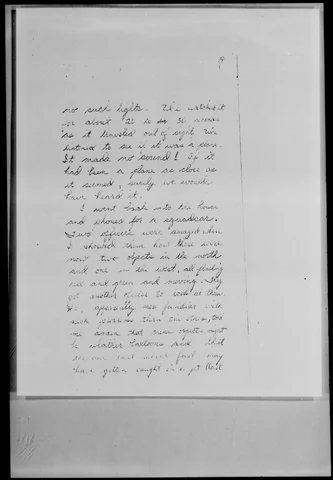 no such lights. We watched it
for about 20 to 30
as it traveled out of sight. We
listened to see if it was a plane.
It made no sound! If it
had been a plane as close as
it seemed, surely we would
have heard it.
I went back into the house
and phoned for a squad car.
Two officers were amazed when
I showed them how there were
now two objects in the north
and one in the west, all flashing
red and green and moving. They
got another officer to look at them.
He, apparently more familiar with
such than the others, told
me again that these objects might
be weather balloons and that
the one that moved fast may
have gotten caught in a jet trail